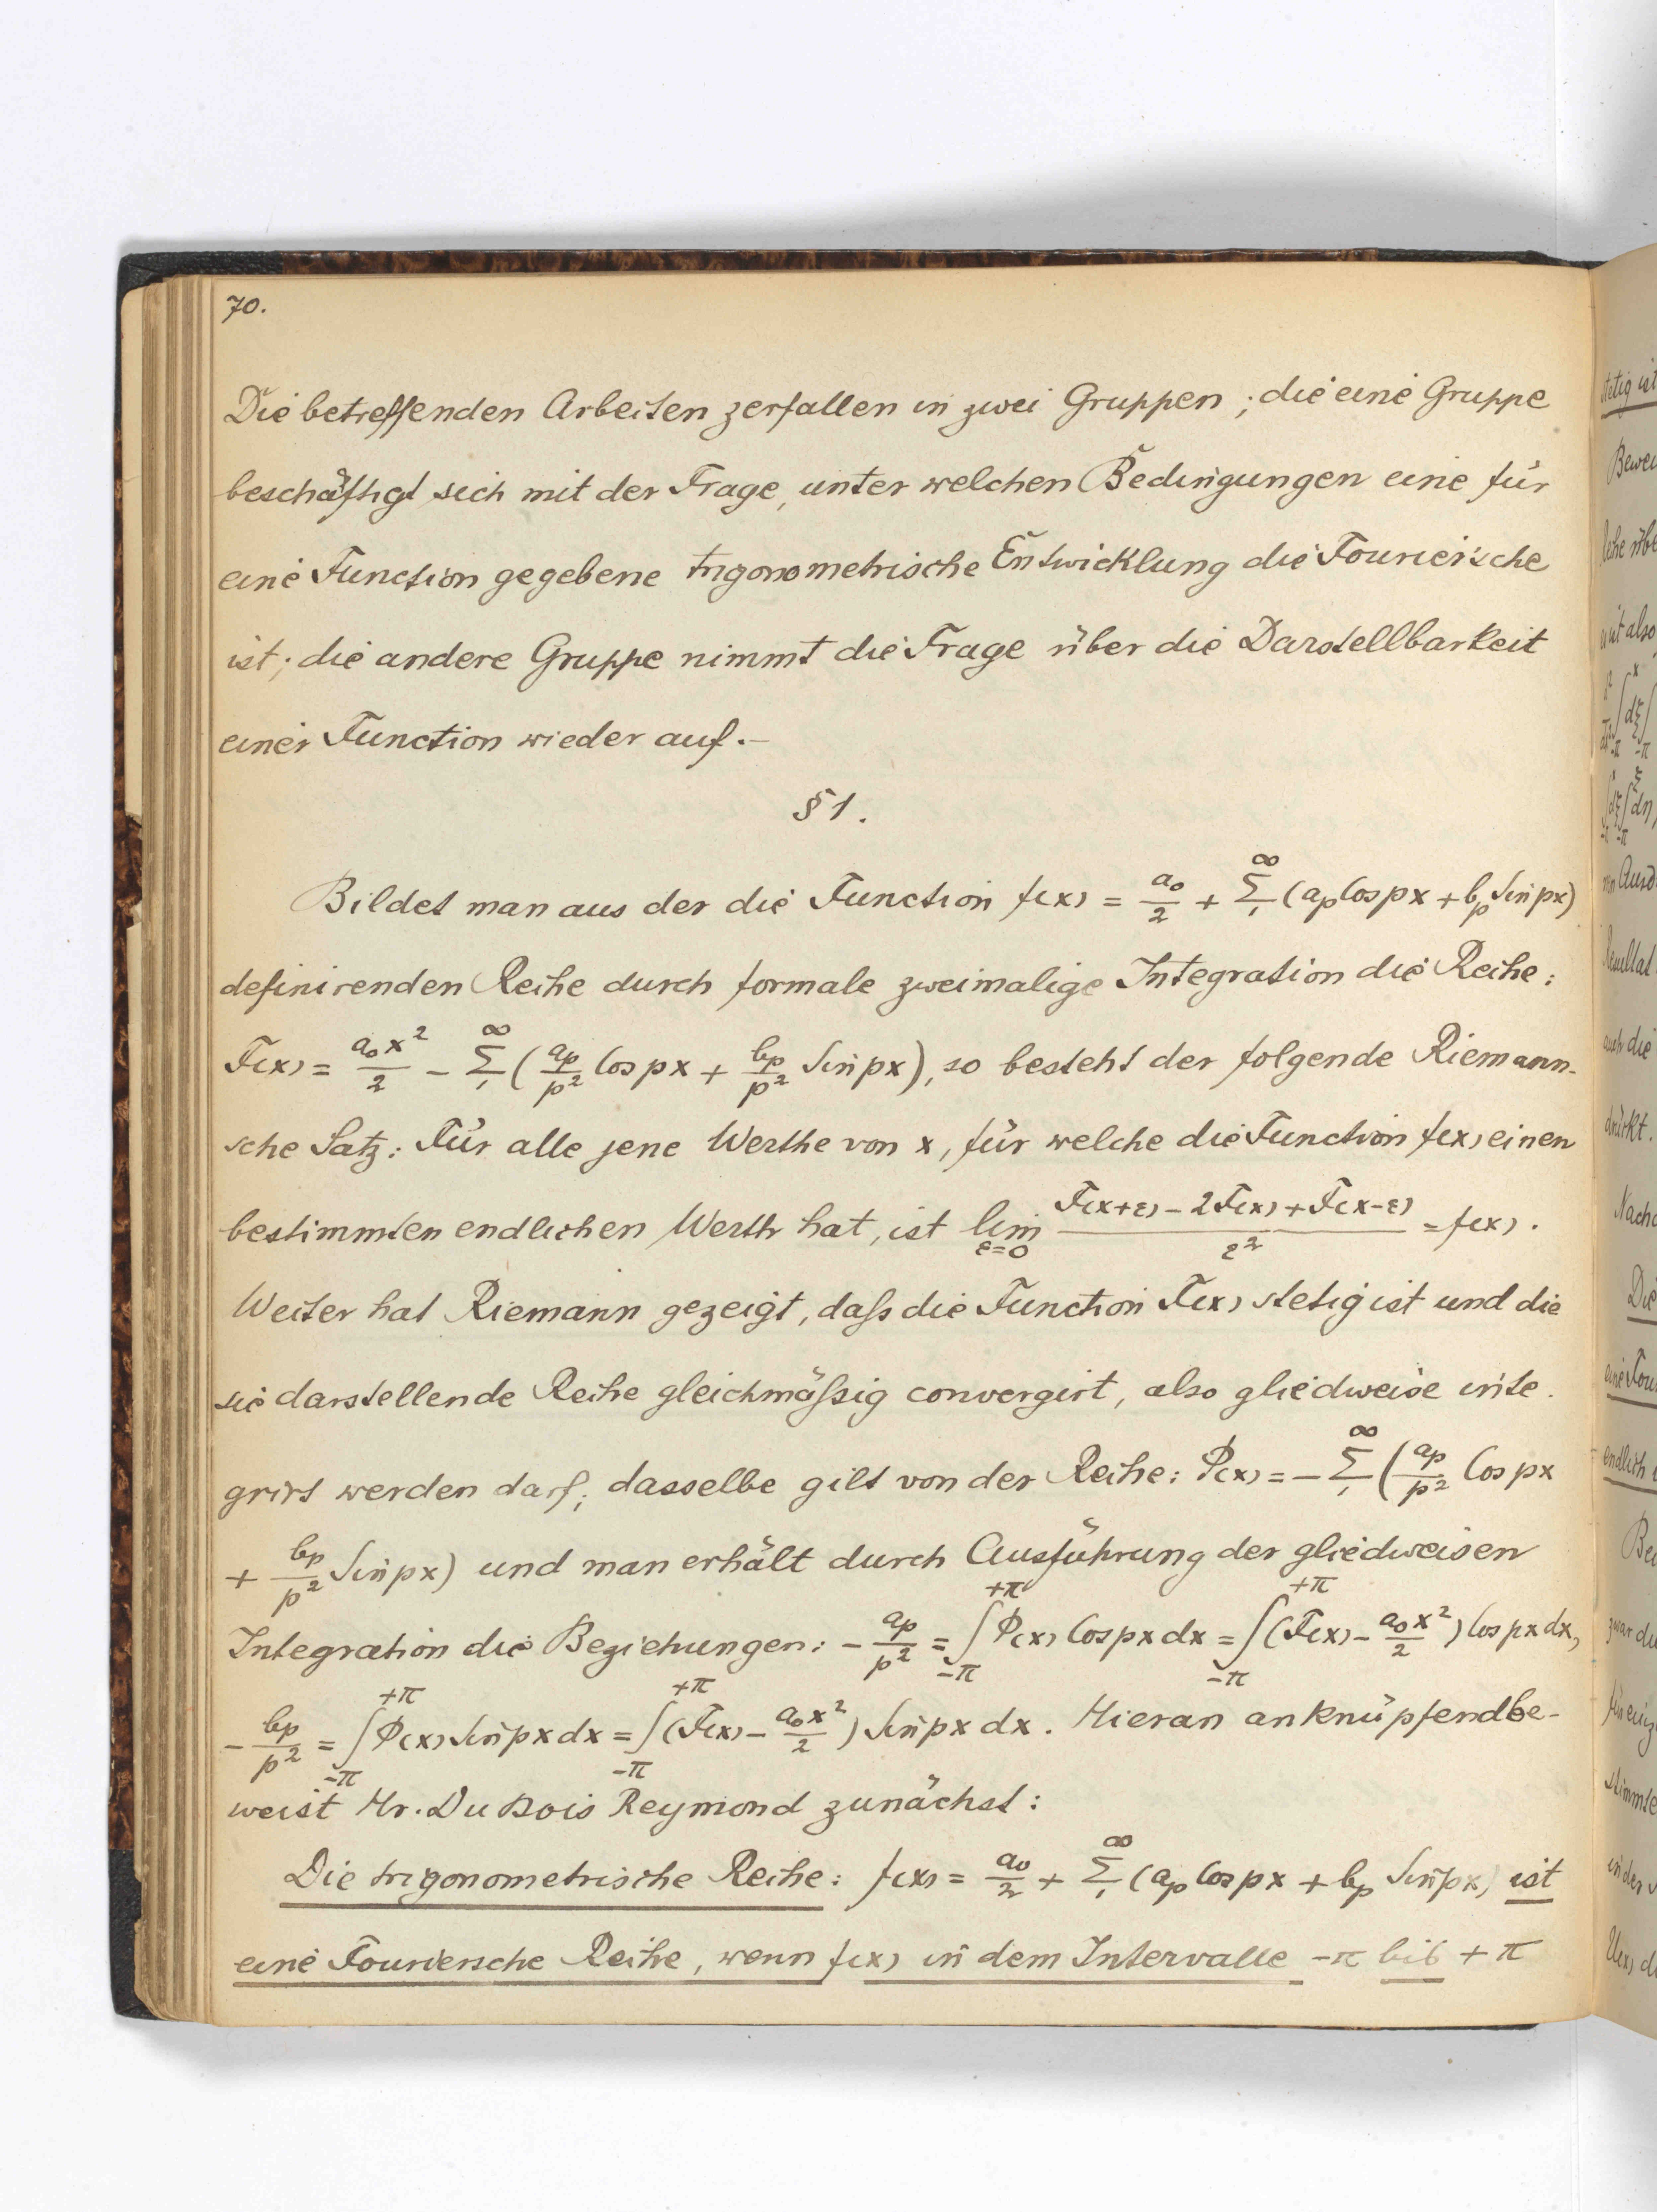 70.
Die betreffenden Arbeiten zerfallen in zwei Gruppen; die eine Gruppe
beschäftigt sich mit der Frage, unter welchen Bedingungen eine für
eine Function gegebene trigonometrische Entwicklung die Fourier'sche
ist; die andere Gruppe nimmt die Frage über die Darstellbarkeit
einer Function wieder auf.–
§ 1.
Bildet man aus der die Function f(x) = a₀/2 + Σ₁^∞ (aₚ Cos px + bₚ Sin px)
definirenden Reihe durch formale zweimalige Integration die Reihe:
F(x) = a₀x²/2 – Σ₁^∞ (aₚ/p² Cos px + bₚ/p² Sin px), so besteht der folgende Riemann-
sche Satz: Für alle jene Werthe von x, für welche die Function f(x) einen
bestimmten endlichen Werth hat, ist lim_{ε=0} (F(x+ε) – 2F(x) + F(x–ε))/ε² = f(x).
Weiter hat Riemann gezeigt, daſs die Function F(x) stetig ist und die
sie darstellende Reihe gleichmäſsig convergirt, also gliedweise inte-
grirt werden darf; dasselbe gilt von der Reihe: Φ(x) = – Σ₁^∞ (aₚ/p² Cos px
+ bₚ/p² Sin px) und man erhält durch Ausführung der gliedweisen
Integration die Beziehungen: – aₚ/p² = ∫_{-π}^{+π} Φ(x) Cos px dx = ∫_{-π}^{+π} (F(x) – a₀x²/2) Cos px dx,
– bₚ/p² = ∫_{-π}^{+π} Φ(x) Sin px dx = ∫_{-π}^{+π} (F(x) – a₀x²/2) Sin px dx. Hieran anknüpfend be-
weist Hr. Du Bois Reymond zunächst:
Die trigonometrische Reihe: f(x) = a₀/2 + Σ₁^∞ (aₚ Cos px + bₚ Sin px) ist
eine Fouriersche Reihe, wenn f(x) in dem Intervalle –π bis +π